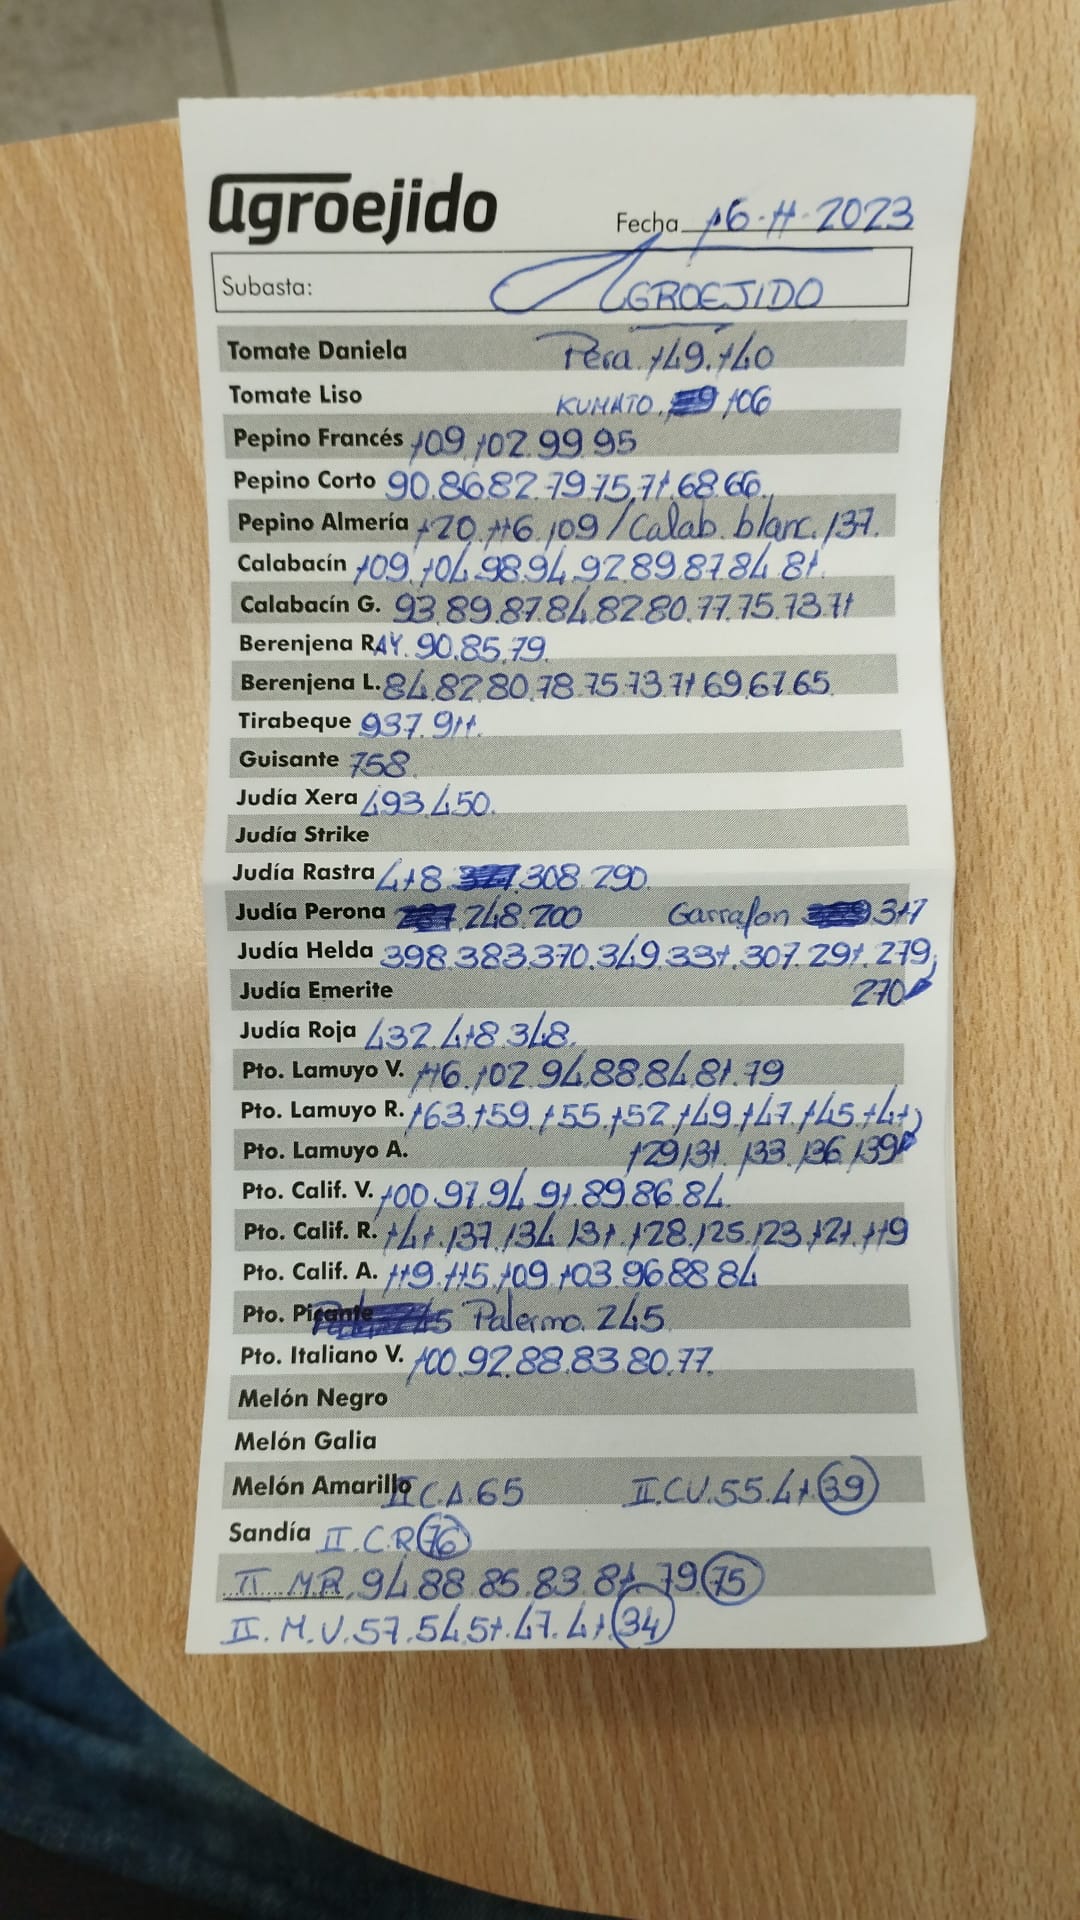 agroejido
Fecha 16-11-2023
Subasta: AGROEJIDO
Tomate Daniela Pera. 149.140
Tomate Liso KUMATO. 106
Pepino Francés 109.102.99.95
Pepino Corto 90.86.82.79.75.71.68.66.
Pepino Almería 120.116.109/Calab. blanc. 137.
Calabacín 109.104.98.94.92.89.87.84.81.
Calabacín G. 93.89.87.84.82.80.77.75.73.71
Berenjena RAY. 90.85.79.
Berenjena L. 84.82.80.78.75.73.71.69.67.65.
Tirabeque 937.911.
Guisante 758.
Judía Xera 493.450.
Judía Strike
Judía Rastra 418. 308.290.
Judía Perona 248.200 Garrafon 317
Judía Helda 398.383.370.349.331.307.291.279,
Judía Emerite 270
Judía Roja 432.418.348.
Pto. Lamuyo V. 116.102.94.88.84.81.79
Pto. Lamuyo R. 163.159.155.152.149.147.145.141)
Pto. Lamuyo A. 129.131. 133.136.139
Pto. Calif. V. 100.97.94.91.89.86.84.
Pto. Calif. R. 141.137.134.131.128.125.123.121.119
Pto. Calif. A. 119.115.109.103.96.88.84
Pto. Picante Palermo. 245.
Pto. Italiano V. 100.92.88.83.80.77.
Melón Negro
Melón Galia
Melón Amarillo II C.A.65 II.C.V.55.41.39
Sandía II.C.R 76
II M.R.94.88.85.83.81.79 75
II.M.V.57.54.51.47.41.34